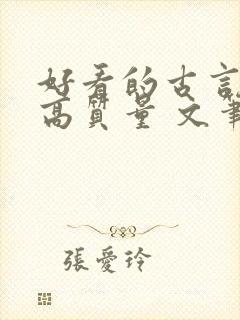 好看的古言
高質量 文筆
張愛玲